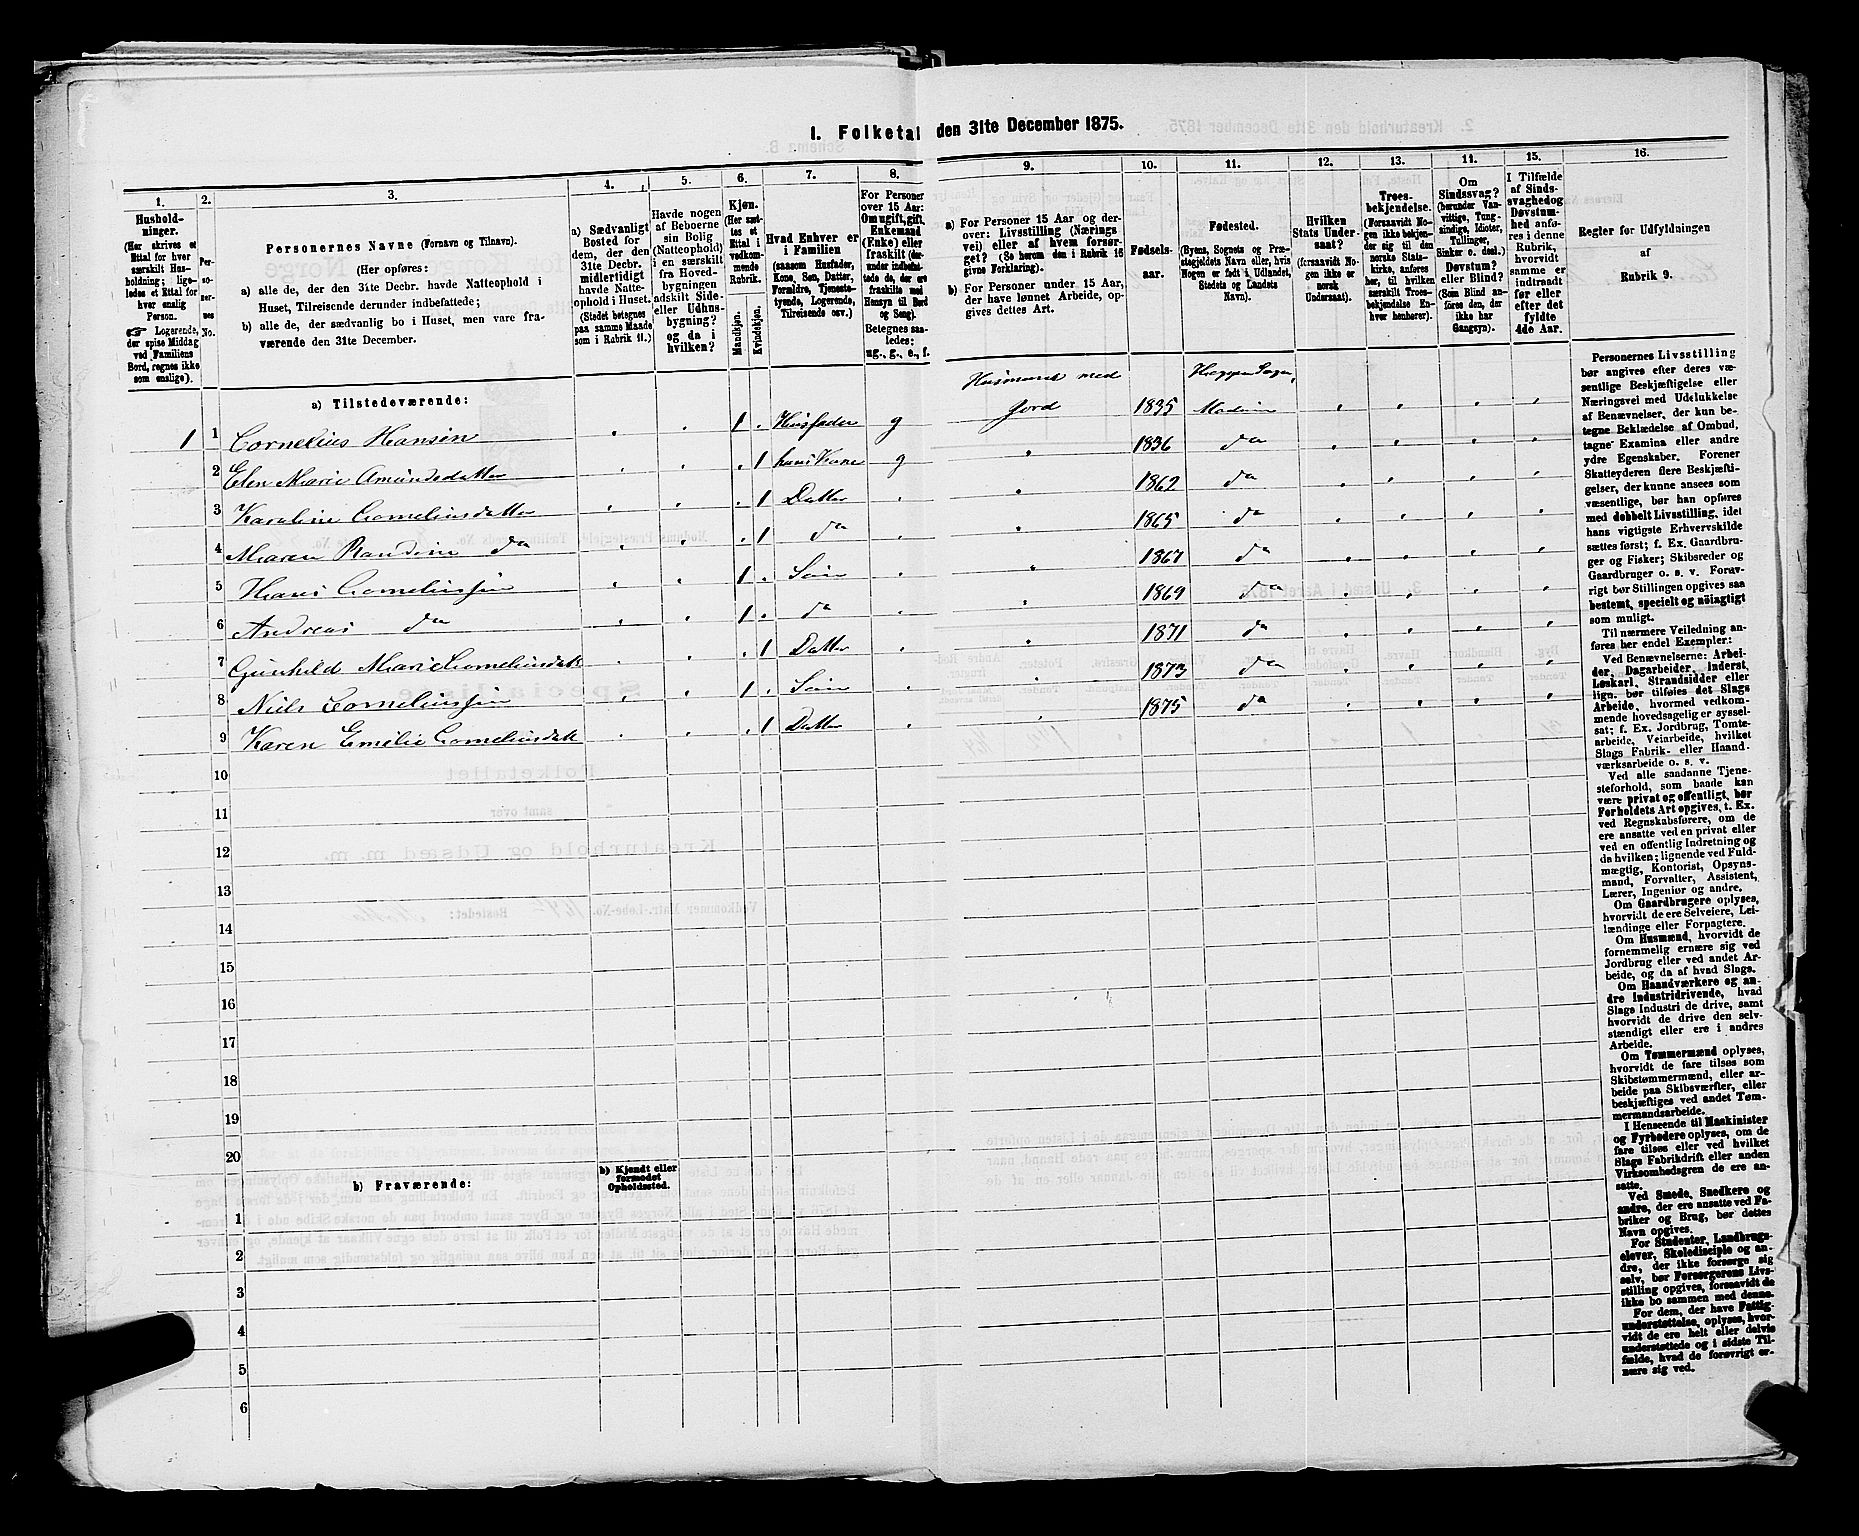 1. Folketal den 31te December 1875.
1.
Hushold-
ninger.
(Her skrives et
Ettal for hver
særskilt Hus-
holdning; lige-
ledes et Ettal for
hver enslig
Person.
☞ Logerende,
der spise Middag
ved Familiens
Bord, regnes ikke
som enslige).
2.
Per-
so-
ner-
nes
No.
3.
Personernes Navne (Fornavn og Tilnavn).
(Her opføres:
a) alle de, der den 31te Decbr. havde Natteophold i
Huset, Tilreisende derunder indbefattede;
b) alle de, der sædvanlig bo i Huset, men vare fra-
værende den 31te December.
4.
a) Sædvanligt
Bosted for
dem, der den
31te Decbr.
midlertidigt
havde Natte-
ophold i Huset.
(Stedet betegnes
paa samme Maade
som i Rubrik 11.)
5.
Havde nogen
af Beboerne
sin Bolig
(Natteophold)
i en særskilt
fra Hoved-
bygningen
adskilt Side-
eller Udhus-
bygning?
og da i
hvilken?
6.
Kjøn.
(Her sæt-
tes et
Ettal i
vedkom-
mende
Rubrik.
Mandkjøn.
Kvindekjøn.
7.
Hvad Enhver er
i Familien
(saasom Husfader,
Kone, Søn, Datter,
Forældre, Tjeneste-
tyende, Logerende,
Tilreisende osv.)
8.
For Personer
over 15 Aar:
Om ugift, gift,
Enkemand
(Enke) eller
fraskilt (der-
under indbefat-
tede de, der ere
fraskilte med
Hensyn til Bord
og Seng).
Betegnes saa-
ledes:
ug., g., e., f.
9.
a) For Personer 15 Aar og der-
over: Livsstilling (Nærings
vei) eller af hvem forsør-
get? (Se herom den i Rubrik 16
givne Forklaring).
b) For Personer under 15 Aar,
der have lønnet Arbeide, op-
gives dettes Art.
10.
Fødsels-
aar.
11.
Fødested.
(Byens, Sognets og Præ-
stegjeldets Navn eller, hvis
Nogen er født i Udlandet,
Stedets og Landets
Navn).
12.
Hvilken
Stats Under-
saat?
(forsaavidt No-
gen ikke er
norsk
Undersaat).
13.
Troes-
bekjendelse.
(Forsaavidt No-
gen ikke bekjen-
der sig til den
norske Stats-
kirke, anføres
her, til hvilken
særskilt Troes-
bekjendelse En-
hver henhører).
14.
Om
Sindssvag?
(herunder Van-
vittige, Tung-
sindige, Idioter,
Tullinger,
Sinker o. desl.)
Døvstum?
eller Blind?
(Som Blind an-
føres den, der
ikke har
Gangsyn).
15.
I Tilfælde
af Sinds-
svaghed og
Døvstum-
hed anfø-
res i denne
Rubrik,
hvorvidt
samme er
indtraadt
før eller
efter det
fyldte
4de Aar.
16.
Regler for Udfyldningen
af
Rubrik 9.
a) Tilstedeværende:
Husmand med Heggen Sogn,
1 1 Cornelius Hansen 1 Husfader g Jord 1835 Modum
2 Elen Marie Amundsdatter 1 hans Kone g 1836 do
3 Karoline Corneliusdatter 1 Datter 1862 do
4 Maren Randine do 1 do 1865 do
5 Hans Corneliussen 1 Søn 1867 do
6 Andreas do 1 do 1869 do
7 Gunhild Marie Corneliusdatt 1 Datter 1871 do
8 Niels Corneliussen 1 Søn 1873 do
9 Karen Emilie Corneliusdatt 1 Datter 1875 do
10
11
12
13
14
15
16
17
18
19
20
b) Fraværende:
b) Kjendt eller
formodet
Opholdssted.
1
2
3
4
5
6
Personernes Livsstilling
bør angives efter deres væ-
sentlige Beskjæftigelse eller
Næringsvei med Udelukkelse
af Benævnelser, der kun be-
tegne Beklædelse af Ombud,
tagne Examina eller andre
ydre Egenskaber. Forener
Skatteyderen flere Beskjæfti-
gelser, der kunne ansees som
væsentlige, bør han opføres
med dobbelt Livsstilling, idet
hans vigtigste Erhvervskilde
sættes først; f. Ex. Gaardbru-
ger og Fisker; Skibsreder og
Gaardbruger o. s. v. Forøv-
rigt bør Stillingen opgives saa
bestemt, specielt og nöiagtigt
som muligt.
Til nærmere Veiledning an-
føres her endel Exempler:
Ved Benævnelserne: Arbei-
der, Dagarbeider, Inderst,
Løskarl, Strandsidder eller
lign. bør tilføies det Slags
Arbeide, hvormed vedkom-
mende hovedsagelig er syssel-
sat; f. Ex. Jordbrug, Tomte-
arbeide, Veiarbeide, hvilket
Slags Fabrik- eller Haand-
værksarbeide o. s. v.
Ved alle saadanne Tjene-
steforhold, som baade kan
være privat og offentligt, bør
Forholdets Art opgives, t. Ex.
ved Regnskabsførere, om de
ere ansatte ved en privat eller
ved en offentlig Indretning og
da hvilken; lignende ved Fuld-
mægtig, Kontorist, Opsyns-
mand, Forvalter, Assistent,
Lærer, Ingeniør og andre.
Om Gaardbrugere oplyses,
hvorvidt de ere Selveiere, Lei-
lændinge eller Forpagtere.
Om Husmænd, hvorvidt de
fornemmelig ernære sig ved
Jordbrug eller ved andet Ar-
beide, og da af hvad Slags.
Om Haandværkere og an-
dre Industridrivende, hvad
Slags Industri de drive, samt
hvorvidt de drive den selv-
stændigt eller ere i andres
Arbeide.
Om Tømmermænd oplyses,
hvorvidt de fare tilsøs som
Skibstømmermænd, eller ar-
beide paa Skibsværfter, eller
beskjæftiges ved andet Tøm-
mermandsarbeide.
I Henseende til Maskinister
og Fyrbødere oplyses, om de
fare tilsøs eller ved hvilket
Slags Fabrikdrift eller anden
Virksomhedsgren de ere an-
satte.
Ved Smede, Snedkere og
andre, der ere ansatte ved Fa-
briker og Brug, bør dettes
Navn opgives.
For Studenter, Landbrugs-
elever, Skoledisciple og an-
dre, der ikke forsørge sig
selv, bør Forsørgerens Livs-
stilling opgives, forsaavidt de
ikke bo sammen med denne.
For dem, der have Fattig-
understøttelse, oplyses, hvor-
vidt de ere helt eller delvis
understøttede og i sidste Til-
fælde, hvad de forøvrigt er-
nære sig ved.